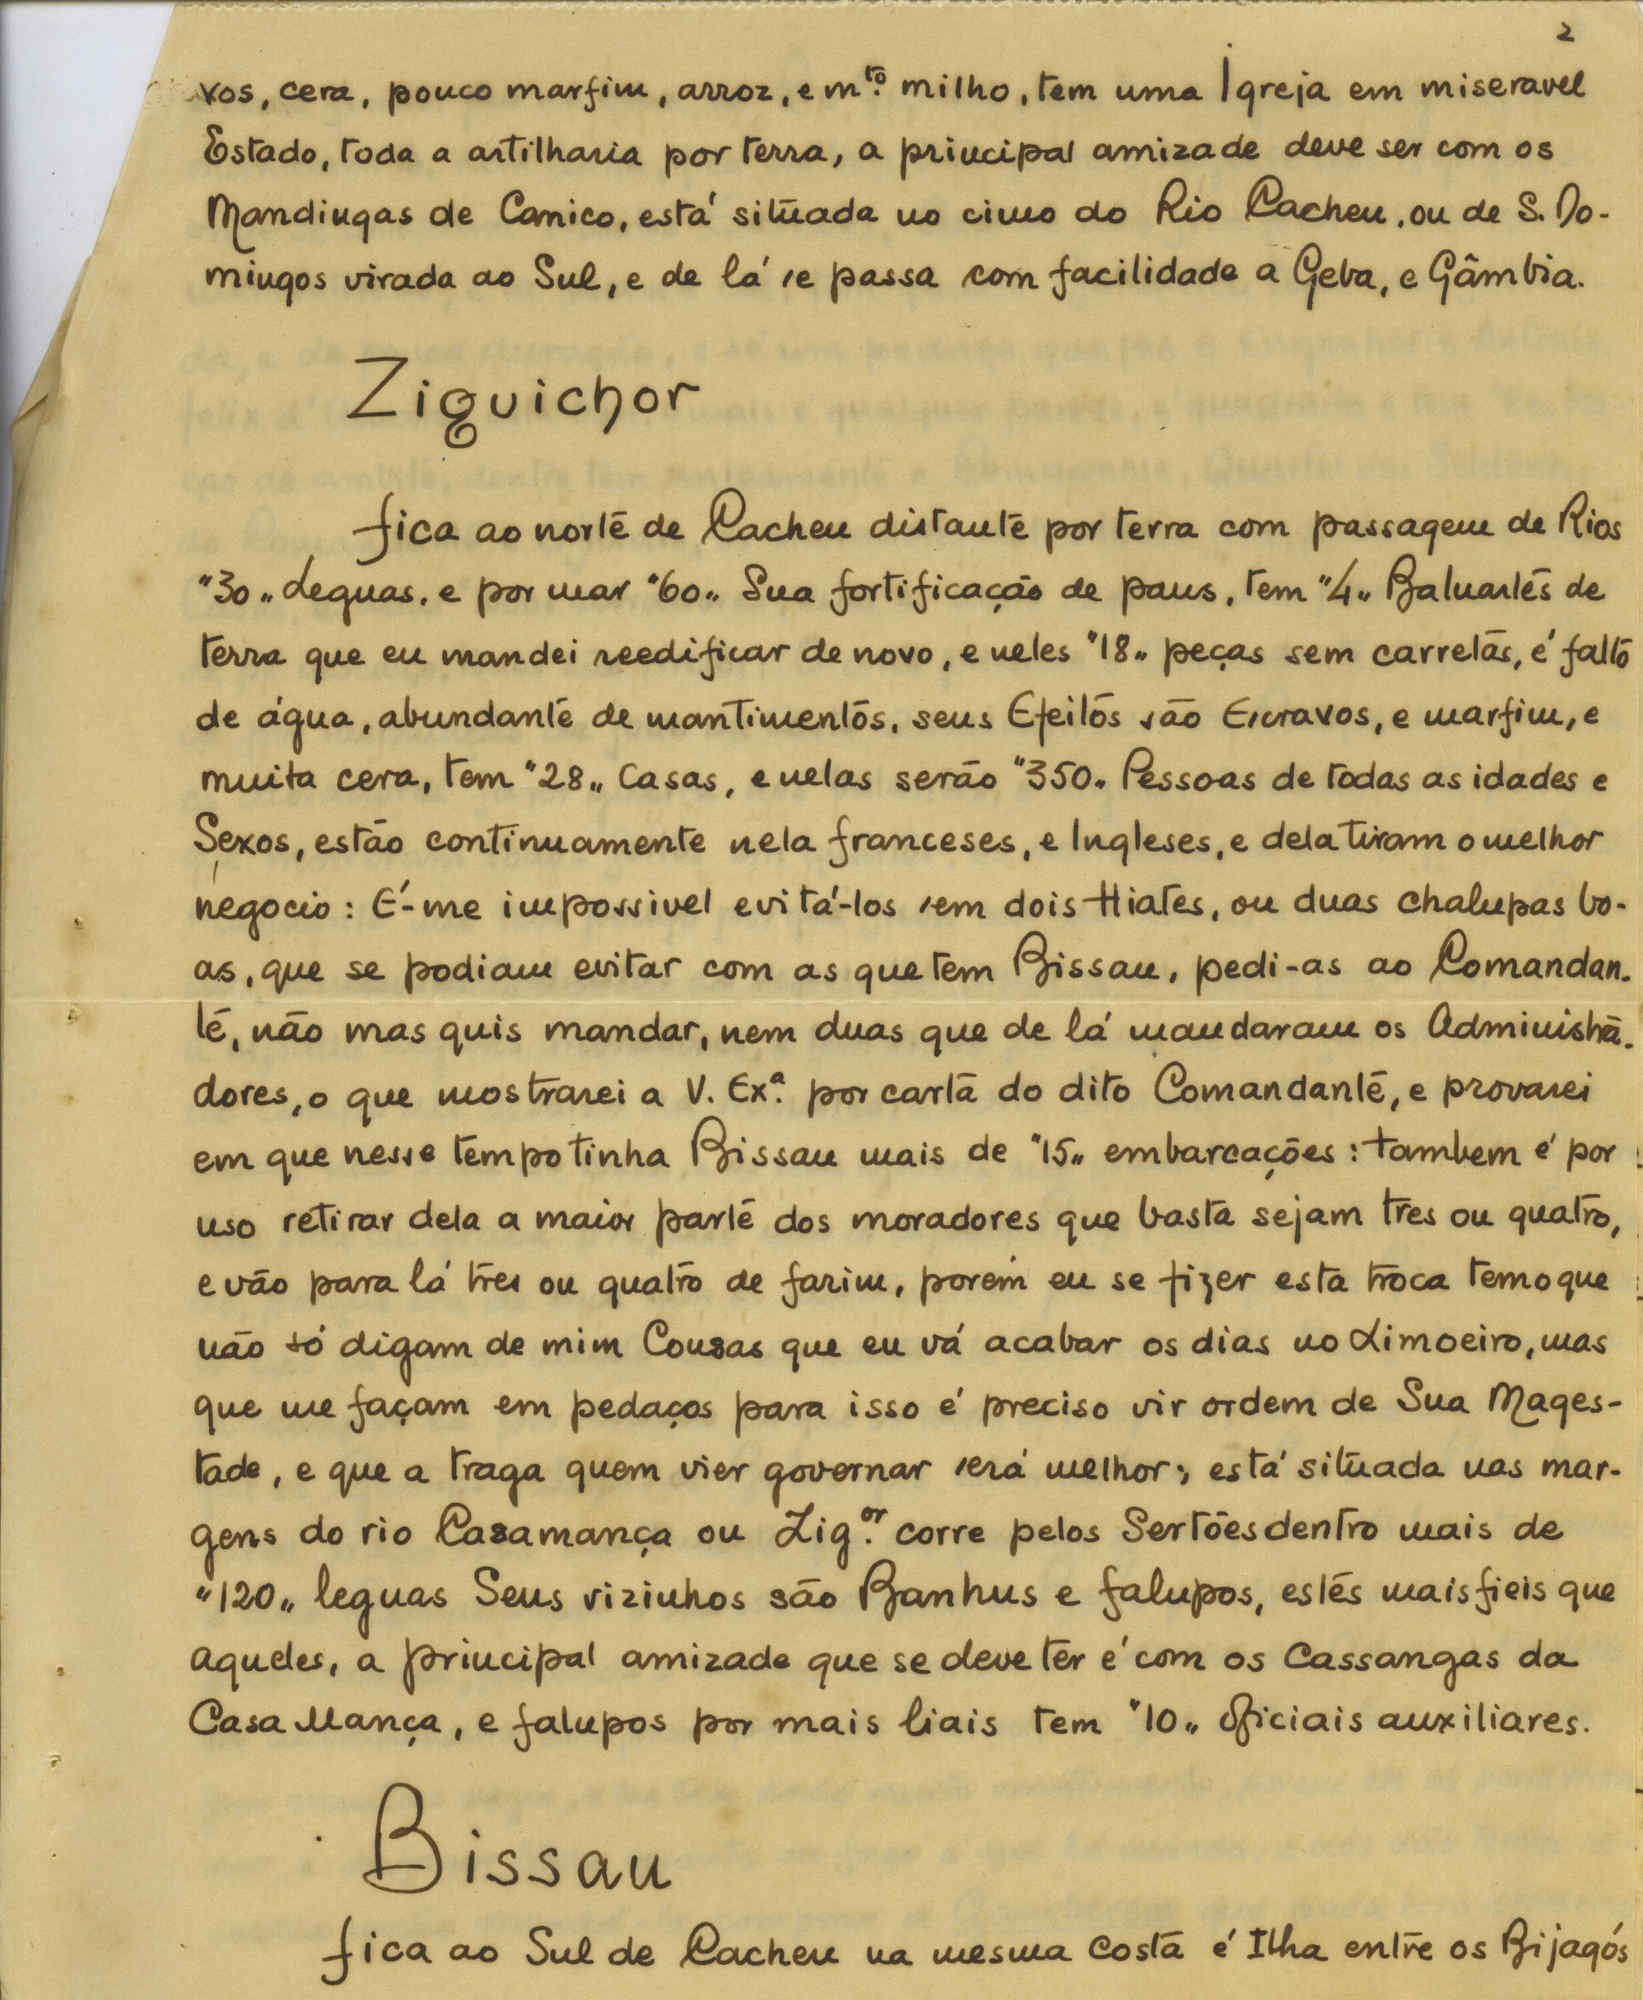 2
vos, cera, pouco marfim, arroz, e m.to milho, tem uma Igreja em miseravel
Estado, toda a artilharia por terra, a principal amizade deve ser com os
Mandingas de Canico, está situada no cimo do Rio Cacheu, ou de S. Do-
mingos virada ao Sul, e de lá se passa com facilidade a Geba, e Gâmbia.
Ziguichor
fica ao norte de Cacheu distante por terra com passagem de Rios
"30" Leguas, e por mar "60" Sua fortificação de paus, tem "4" Baluartes de
terra que eu mandei reedificar de novo, e neles "18" peças sem carretas, é falto
de água, abundante de mantimentos, seus Efeitos são Escravos, e marfim, e
muita cera, tem "28" Casas, e nelas serão "350" Pessoas de todas as idades e
Sexos, estão continuamente nela franceses, e Ingleses, e dela tiram o melhor
negocio: É-me impossivel evitá-los sem dois Hiates, ou duas chalupas bo-
as, que se podiam evitar com as que tem Bissau, pedi-as ao Comandan-
te, não mas quis mandar, nem duas que de lá mandaram os Administra-
dores, o que mostrarei a V. Ex.ª por carta do dito Comandante, e provarei
em que nesse tempo tinha Bissau mais de "15" embarcações: tambem é por
uso retirar dela a maior parte dos moradores que basta sejam tres ou quatro,
e vão para lá tres ou quatro de farim, porém eu se fizer esta troca temo que
não só digam de mim Cousas que eu vá acabar os dias no Limoeiro, mas
que me façam em pedaços para isso é preciso vir ordem de Sua Mages-
tade, e que a traga quem vier governar será melhor; está situada nas mar-
gens do rio Casamança ou Zig.or corre pelos Sertões dentro mais de
"120" leguas Seus vizinhos são Banhus e falupos, estes mais fieis que
aqueles, a principal amizade que se deve ter é com os Cassangas da
Casa Mança, e falupos por mais liais tem "10" Oficiais auxiliares.
Bissau
fica ao Sul de Cacheu na mesma Costa é Ilha entre os Bijagós